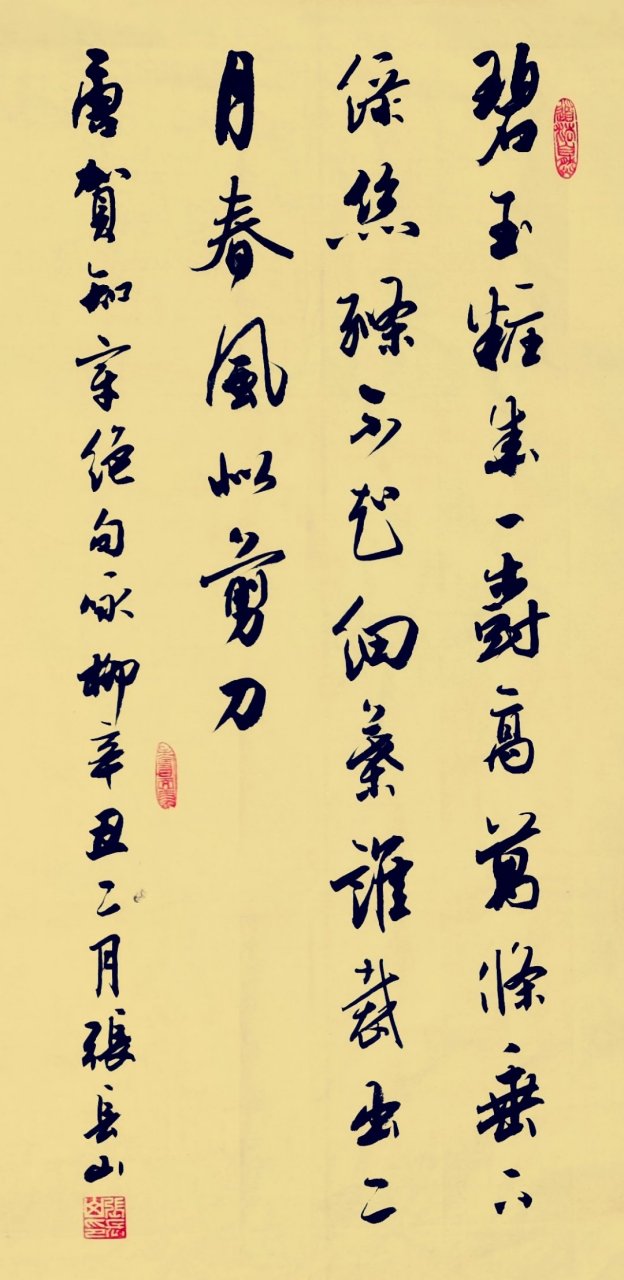 道法自然
碧玉粧成一樹高萬條垂下
綠絲縧不知細葉誰裁出二
月春風似剪刀
唐賀知章絕句咏柳辛丑二月張岳山
張岳山印